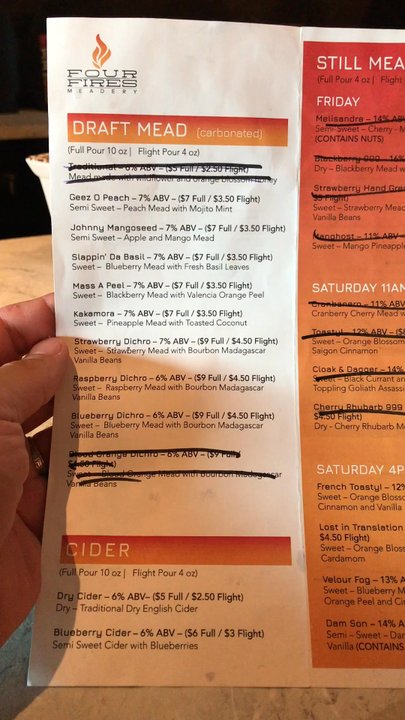 FOUR
FIRES
MEADERY
DRAFT MEAD (carbonated)
(Full Pour 10 oz | Flight Pour 4 oz)
Traditional – 6% ABV – ($5 Full / $2.50 Flight)
Mead made with wildflower and orange blossom honey
Geez O Peach – 7% ABV – ($7 Full / $3.50 Flight)
Semi Sweet – Peach Mead with Mojito Mint
Johnny Mangoseed – 7% ABV – ($7 Full / $3.50 Flight)
Semi Sweet – Apple and Mango Mead
Slappin' Da Basil – 7% ABV – ($7 Full / $3.50 Flight)
Sweet – Blueberry Mead with Fresh Basil Leaves
Mass A Peel – 7% ABV – ($7 Full / $3.50 Flight)
Sweet – Blackberry Mead with Valencia Orange Peel
Kakamora – 7% ABV – ($7 Full / $3.50 Flight)
Sweet – Pineapple Mead with Toasted Coconut
Strawberry Dichro – 7% ABV – ($9 Full / $4.50 Flight)
Sweet – Strawberry Mead with Bourbon Madagascar
Vanilla Beans
Raspberry Dichro – 6% ABV – ($9 Full / $4.50 Flight)
Sweet – Raspberry Mead with Bourbon Madagascar
Vanilla Beans
Blueberry Dichro – 6% ABV – ($9 Full / $4.50 Flight)
Sweet – Blueberry Mead with Bourbon Madagascar
Vanilla Beans
Blood Orange Dichro – 6% ABV – ($9 Full /
$4.50 Flight)
Sweet – Blood Orange Mead with Bourbon Madagascar
Vanilla Beans
CIDER
(Full Pour 10 oz | Flight Pour 4 oz)
Dry Cider – 6% ABV– ($5 Full / $2.50 Flight)
Dry – Traditional Dry English Cider
Blueberry Cider – 6% ABV – ($6 Full / $3 Flight)
Semi Sweet Cider with Blueberries
STILL MEA
(Full Pour 4 oz | Flight
FRIDAY
Melisandra – 14% AB
Semi-Sweet – Cherry – M
(CONTAINS NUTS)
Blackberry 999 – 16%
Dry – Blackberry Mead w
Strawberry Hand Gre
$5 Flight)
Sweet – Strawberry Mead
Vanilla Beans
Manghost – 11% ABV
Sweet – Mango Pineapple
SATURDAY 11AM
Cranbanero – 11% ABV
Cranberry Cherry Mead w
Toastyl – 12% ABV – ($8
Sweet – Orange Blossom
Saigon Cinnamon
Cloak & Dagger – 14%
Sweet – Black Currant an
Toppling Goliath Assassi
Cherry Rhubarb 999
$4.50 Flight)
Dry - Cherry Rhubarb M
SATURDAY 4P
French Toastyl – 12%
Sweet – Orange Blosso
Cinnamon and Vanilla
Lost in Translation
$4.50 Flight)
Sweet – Orange Bloss
Cardamom
Velour Fog – 13% A
Sweet – Blueberry M
Orange Peel and Cin
Dam Son – 14% A
Semi – Sweet – Dar
Vanilla (CONTAINS